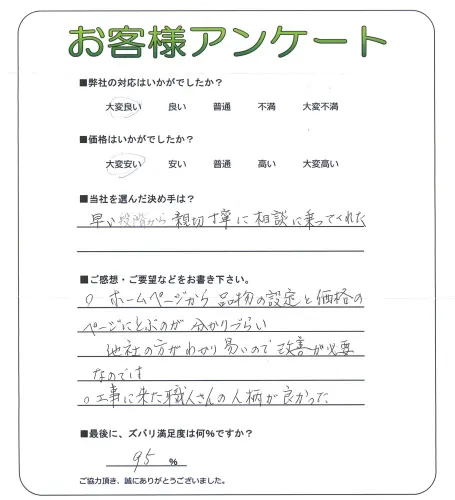 お客様アンケート
■弊社の対応はいかがでしたか？
大変良い 良い 普通 不満 大変不満
■価格はいかがでしたか？
大変安い 安い 普通 高い 大変高い
■当社を選んだ決め手は？
早い段階から 親切丁寧に相談に乗ってくれた
■ご感想・ご要望などをお書き下さい。
○ ホームページから 品物の設定と価格の
ページにとぶのが 分かりづらい
他社の方がわかり易いので 改善が必要
なのでは
○工事に来た職人さんの人柄が良かった
■最後に、ズバリ満足度は何%ですか？
95 %
ご協力頂き、誠にありがとうございました。